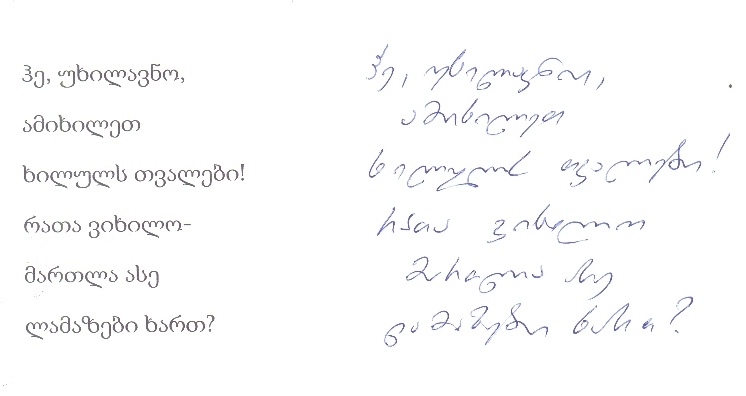 ჰე, უხილავნო,
ამიხილეთ
ხილულს თვალები!
რათა ვიხილო-
მართლა ასე
ლამაზები ხართ?
ჰე, უხილავნო,
ამიხილეთ
ხილულს თვალები!
რათა ვიხილო
მართლა ასე
ლამაზები ხართ?